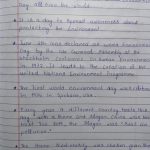 day all over the world.
• It is a day to spread awareness about
protecting the Environment.
• June 5th was declared as World Environment
Day by the UN General Assembly at the
Stockholm Conference on Human Environment
in 1972. It leads to the creation of the
United Nations Environment Programme.
• The first World Environment day was celebrated
in 1974 in Spokane, USA.
• Every year a different country hosts this
day with a theme and slogan. China was the
host for 2019, the slogan was "Beat air
pollution."